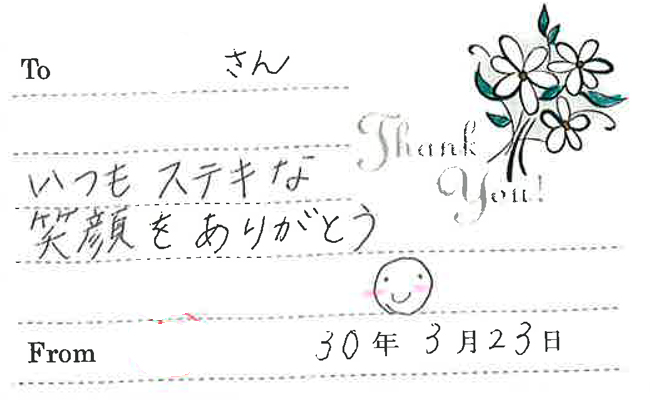 To さん
Thank
You!
いつも ステキな
笑顔を ありがとう
From 30年 3月23日